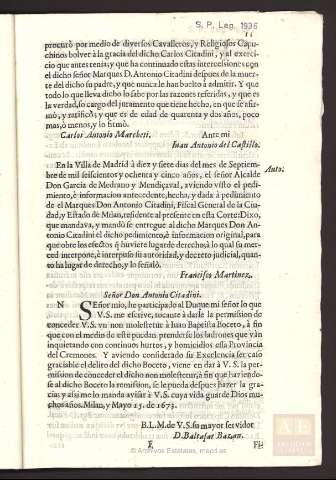 S. P. Leg. 1936
11
procurò por medio de diversos Cavalleros, y Religiosos Capuchinos
bolver à la gracia del dicho Carlos Citadini, y al exercicio
que antes tenia; y que ha continuado estas intercessiones con
el dicho señor Marques D. Antonio Citadini despues de la muerte
del dicho su padre, y que nunca le han buelto à admitir. Y que
todo lo que lleva dicho lo sabe por las razones referidas, y que es
la verdad, so cargo del juramento que tiene hecho, en que se afirmò,
y ratificò, y que es de edad de quarenta y dos años, poco
mas, ò menos, y lo firmò.
Carlos Antonio Marcheti. Ante mi
Iuan Antonio del Castillo.
En la Villa de Madrid à diez y siete dias del mes de Septiembre
de mil seiscientos y ochenta y cinco años, el señor Alcalde
Don Garcia de Medrano y Mendiçaval, aviendo visto el pedimiento,
è informacion antecedente, hecha, y dada à pedimiento
de el Marques Don Antonio Citadini, Fiscal General de la Ciudad,
y Estado de Milan, residente al presente en esta Corte: Dixo,
que mandava, y mandò se entregue al dicho Marques Don Antonio
Citadini el dicho pedimiento, è informacion original, para
que obre los efectos q̃ huviere lugar de derecho, à lo qual su merced
interpone, è interpuso su autoridad, y decreto judicial, quanto
ha lugar de derecho, y lo señalò.
Auto;
Francisco Martinez,
Señor Don Antonio Citadini.
N
SEñor mio, he participado al Duque mi señor lo que
V.S. me escrive, tocante à darle la permission de
conceder V.S. vn non molestetur à Iuan Baptista Boceto, à fin
que con el medio de este puedan prenderse los ladrones que vàn
inquietando con continuos hurtos, y homicidios essa Provincia
del Cremonès. Y aviendo considerado su Excelencia ser caso
graciable el delito del dicho Boceto, viene en dàr à V.S. la permission
de conceder el dicho non molestetur, à fin que haziendose
al dicho Boceto la remission, se le pueda despues hazer la gracia;
y assi me lo manda avisar à V.S. cuya vida guarde Dios muchos
años. Milan, y Mayo 15. de 1673.
B.L.M. de V.S. su mayor servidor
D. Baltasar Bazan.
F
© Archivos Estatales, mecd.es